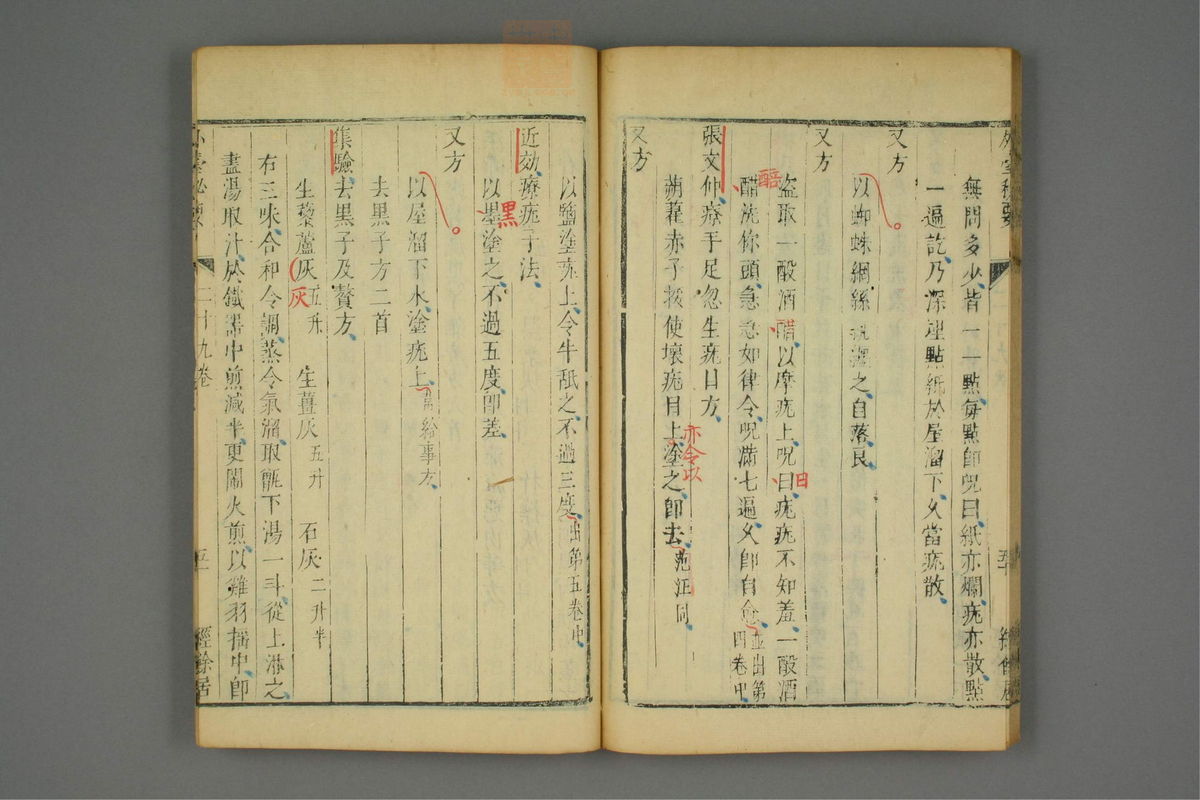 無問多少皆一一點每點即呪曰紙亦爛疣亦散點
一遍訖乃深埋點紙於屋溜下久當疣散
又方
以蜘蛛網絲繞纏之自落良
又方
盜取一酘酒醋以摩疣上呪曰疣疣不知羞一酘酒
日
醋洗你頭急急如律令呪滿七遍久即自愈並出第四卷中
醅
張文仲療手足忽生疣目方
亦令以
蒴藋赤子挼使壞疣目上塗之即去范汪同
又方
以鹽塗疣上令牛舐之不過三度出第五卷中
近効療疣子法
以墨塗之不過五度即差
黑
又方
以屋溜下水塗疣上給事方
去黑子方二首
集驗去黑子及贅方
生藜蘆灰五升 生薑灰五升 石灰二升半
灰
右三味合和令調蒸令氣溜取甑下湯一斗從上淋之
盡湯取汁於鐵器中煎減半更闌火煎以雞羽搖中即
二十九卷
經餘居